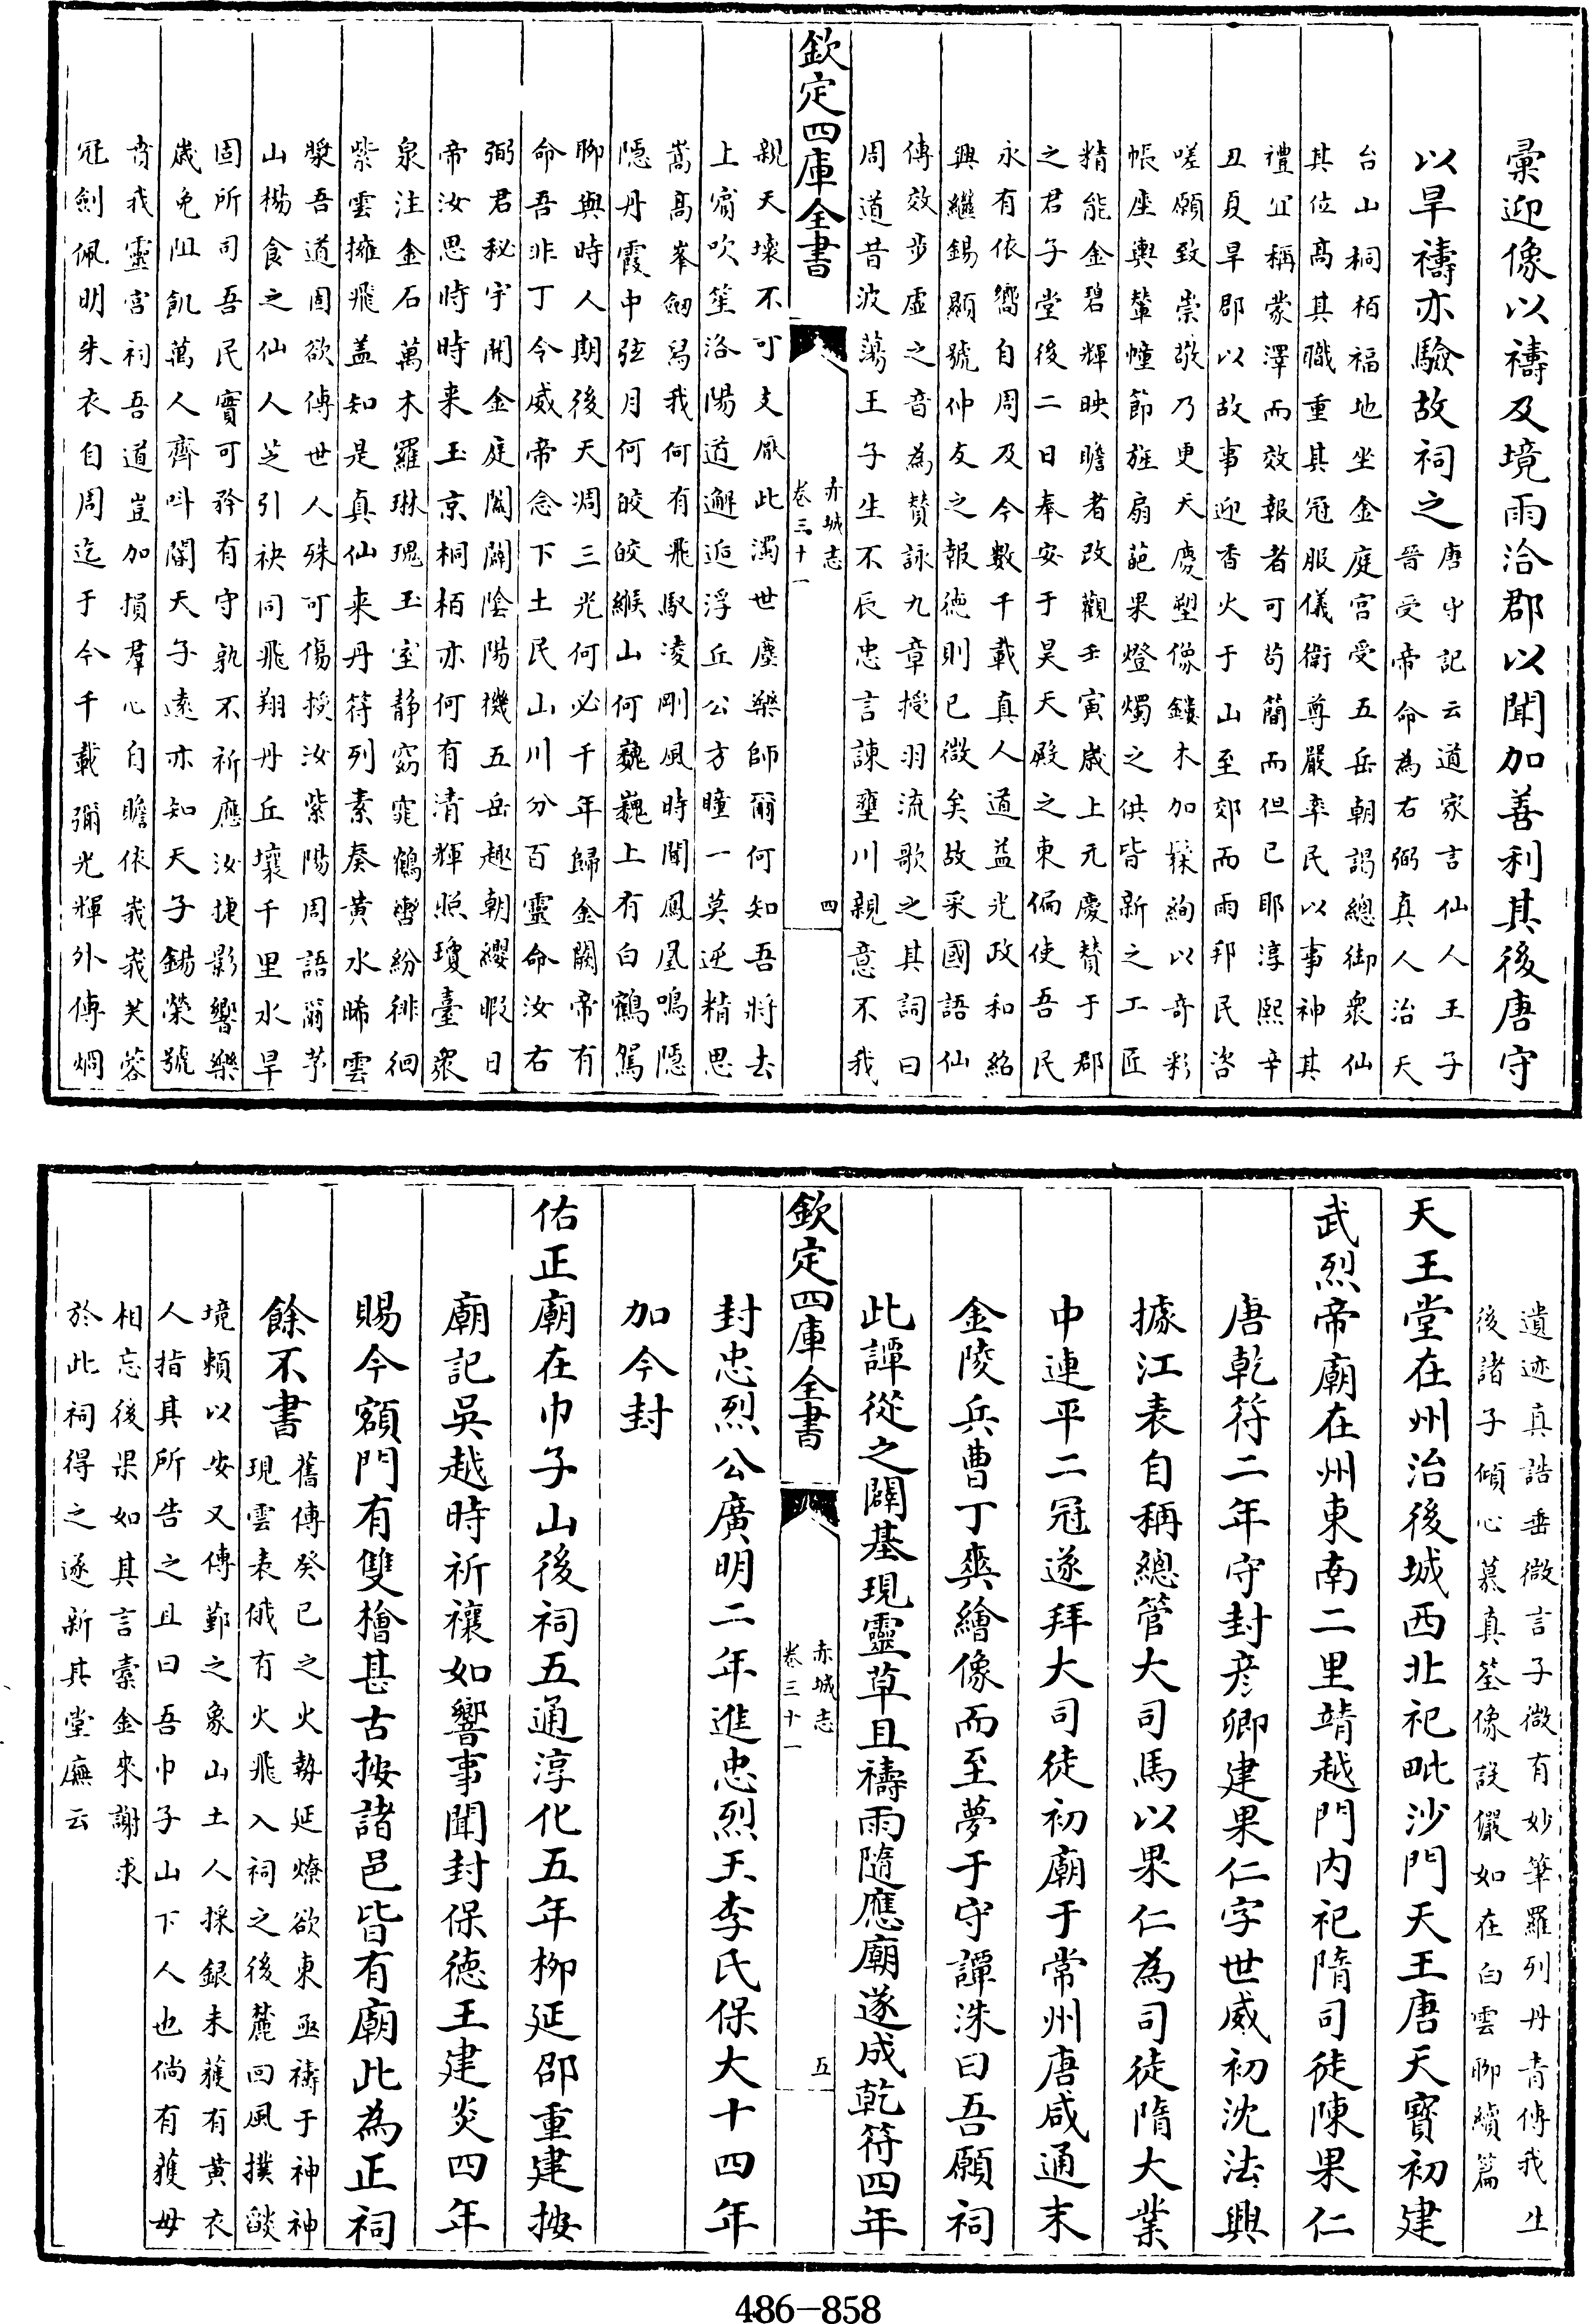 彙迎像以禱及境雨洽郡以聞加善利其後唐守
以旱禱亦驗故祠之
唐守記云道家言仙人王子
晉受帝命為右弼真人治天
台山桐栢福地坐金庭宮受五岳朝謁總御衆仙
其位髙其職重其冠服儀衛尊嚴率民以事神其
禮宜稱蒙澤而效報者可茍簡而但已耶淳熙辛
丑夏旱郡以故事迎香火于山至郊而雨邦民咨
嗟願致崇敬乃更天慶塑像鏤木加髹絢以竒彩
帳座輿輦幢節旌扇葩果燈燭之供皆新之工匠
精能金碧輝映瞻者改觀壬寅嵗上元慶賛于郡
之君子堂後二日奉安于昊天殿之東偏使吾民
永有依嚮自周及今數千載真人道益光政和紹
興繼錫顯號仲友之報徳則已微矣故采國語仙
傳效步虛之音為賛詠九章授羽流歌之其詞曰
周道昔波蕩王子生不辰忠言諫壅川親意不我
欽定四庫全書
赤城志
卷三十一
四
親天壊不可支厭此濁世塵樂師爾何知吾將去
上賔吹笙洛陽道邂逅浮丘公方瞳一莫逆精思
嵩髙峯劔舄我何有飛馭凌剛風時聞鳳凰鳴隠
隠丹霞中弦月何皎皎緱山何巍巍上有白鶴駕
聊與時人期後天凋三光何必千年歸金闕帝有
命吾非丁令威帝念下土民山川分百靈命汝右
弼君秘宇開金庭闔闢隂陽機五岳趣朝纓暇日
帝汝思時時来玉京桐栢亦何有清輝照瓊臺衆
泉注金石萬木羅琳瑰玉室静窈窕鶴轡紛徘徊
紫雲擁飛盖知是真仙来丹符列素奏黄水晞雲
漿吾道固欲傳世人殊可傷授汝紫陽周語爾茅
山楊食之仙人芝引袂同飛翔丹丘壤千里水旱
固所司吾民實可矜有守孰不祈應汝捷影響樂
嵗免阻飢萬人齊呌閽天子逺亦知天子錫榮號
賁我靈宫祠吾道豈加損羣心自瞻依峩峩芙蓉
冠劍佩明朱衣自周迄于今千載彌光輝外傳炯
遺迹真誥垂微言子微有妙筆羅列丹青傳我生
後諸子傾心慕真筌像設儼如在白雲聊續篇
天王堂在州治後城西北祀毗沙門天王唐天寳初建
武烈帝廟在州東南二里靖越門内祀隋司徒陳果仁
唐乾符二年守封彦卿建果仁字世威初沈法興
據江表自稱總管大司馬以果仁為司徒隋大業
中連平二冦遂拜大司徒初廟于常州唐咸通末
金陵兵曹丁奭繪像而至夢于守譚洙曰吾願祠
此譚從之闢基現靈草且禱雨隨應廟遂成乾符四年
欽定四庫全書
赤城志
卷三十一
五
封忠烈公廣明二年進忠烈王李氏保大十四年
加今封
佑正廟在巾子山後祠五通淳化五年柳延邵重建按
廟記吳越時祈禳如響事聞封保德王建炎四年
賜今額門有雙檜甚古按諸邑皆有廟此為正祠
餘不書
舊傳癸已之火勢延燎欲東亟禱于神神
現雲表俄有火飛入祠之後麓回風撲燄
境頼以安又傳鄞之象山土人採銀未獲有黄衣
人指其所告之且曰吾巾子山下人也倘有獲毋
相忘後果如其言槖金來謝求
於此祠得之遂新其堂廡云
486-858